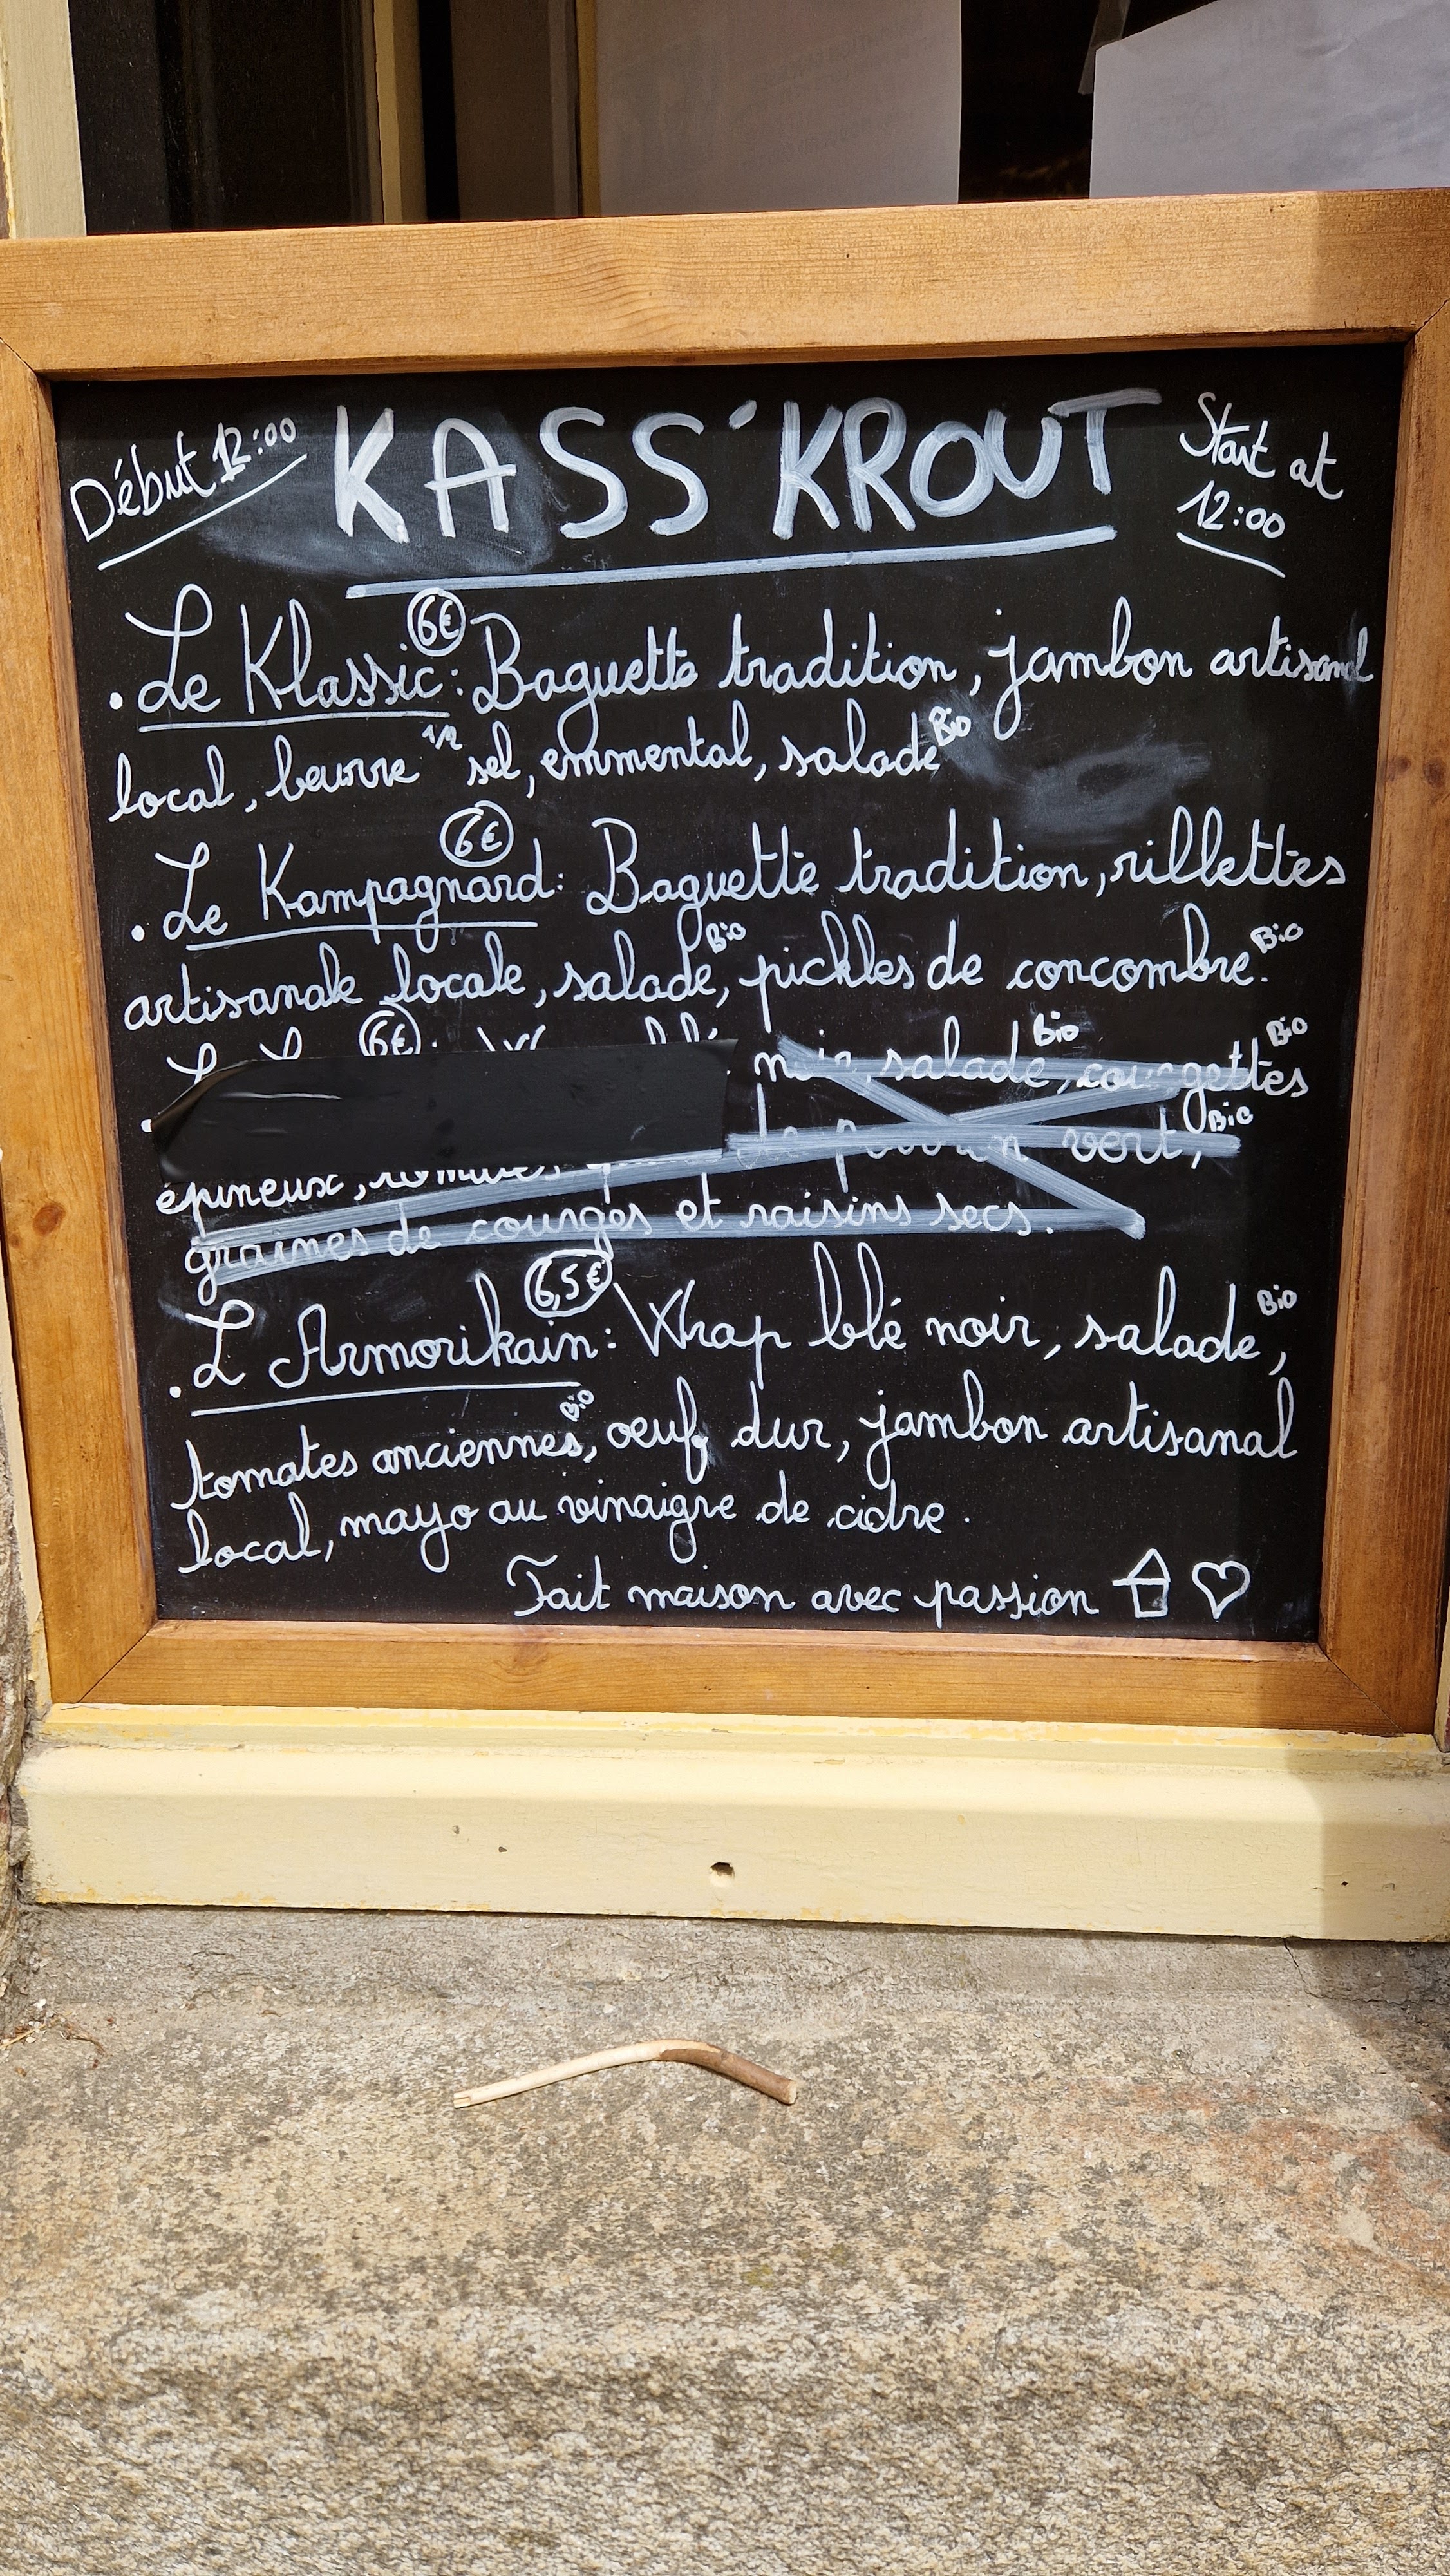 Début 12:00
KASS'KROUT
Start at
12:00
. Le Klassic : 6€ Baguette tradition, jambon artisanal
local, beurre 1/2 sel, emmental, salade Bio
. Le Kampagnard : 6€ Baguette tradition, rillettes
artisanale locale, salade Bio, pickles de concombre. Bio
6€ noir salade Bio, courgettes Bio
poivron vert, Bio
épineux,
graines de courges et raisins secs.
. L'Armorikain : 6,5€ Wrap blé noir, salade Bio,
tomates anciennes Bio, oeuf dur, jambon artisanal
local, mayo au vinaigre de cidre.
Fait maison avec passion